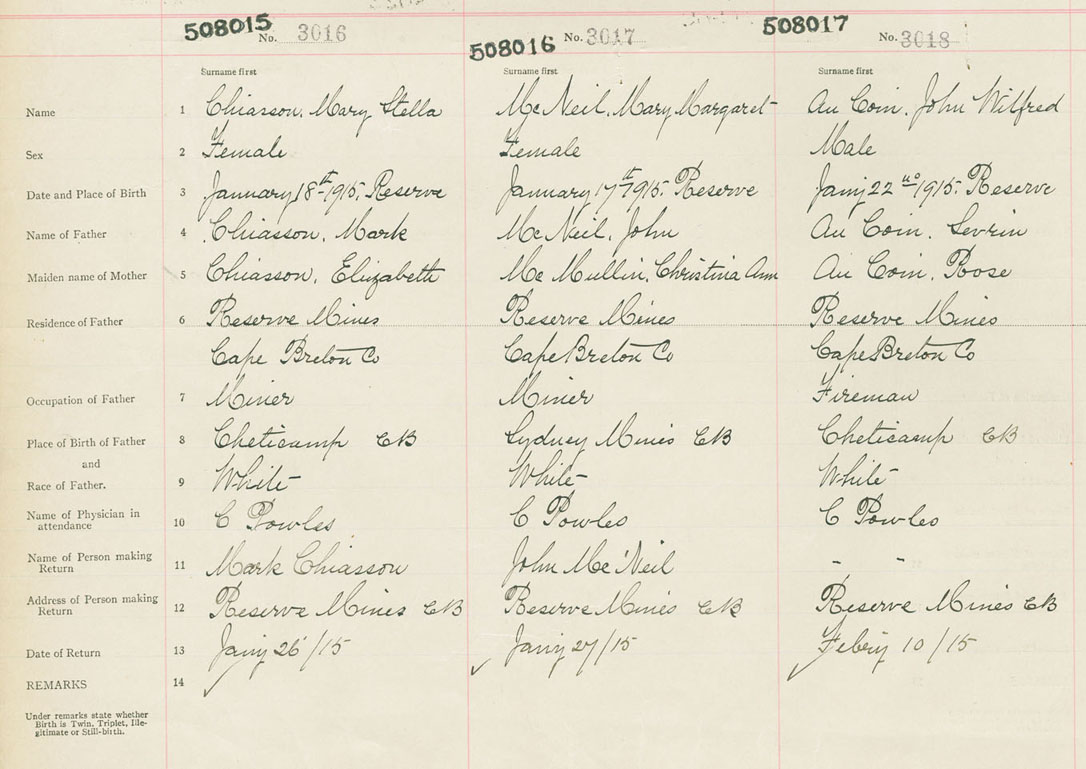 508015 No. 3016 508016 No. 3017 508017 No. 3018
Surname first Surname first Surname first
Name 1 Chiasson, Mary Stella Mc Neil, Mary Margaret Au Coin, John Wilfred
Sex 2 Female Female Male
Date and Place of Birth 3 January 18th 1915. Reserve January 17th 1915. Reserve Jan'y 22nd 1915. Reserve
Name of Father 4 Chiasson, Mark Mc Neil, John Au Coin, Sevrin
Maiden name of Mother 5 Chiasson, Elizabeth Mc Mullin, Christina Ann Au Coin, Rose
Residence of Father 6 Reserve Mines Reserve Mines Reserve Mines
Cape Breton Co Cape Breton Co Cape Breton Co
Occupation of Father 7 Miner Miner Fireman
Place of Birth of Father 8 Cheticamp CB Sydney Mines CB Cheticamp CB
and
Race of Father. 9 White White White
Name of Physician in
attendance 10 C Powles C Powles C Powles
Name of Person making
Return 11 Mark Chiasson John McNeil - -
Address of Person making
Return 12 Reserve Mines CB Reserve Mines CB Reserve Mines CB
Date of Return 13 Jan'y 26/15 Jan'y 27/15 Feb'y 10/15
REMARKS 14
Under remarks state whether
Birth is Twin, Triplet, Ille-
gitimate or Still-birth.